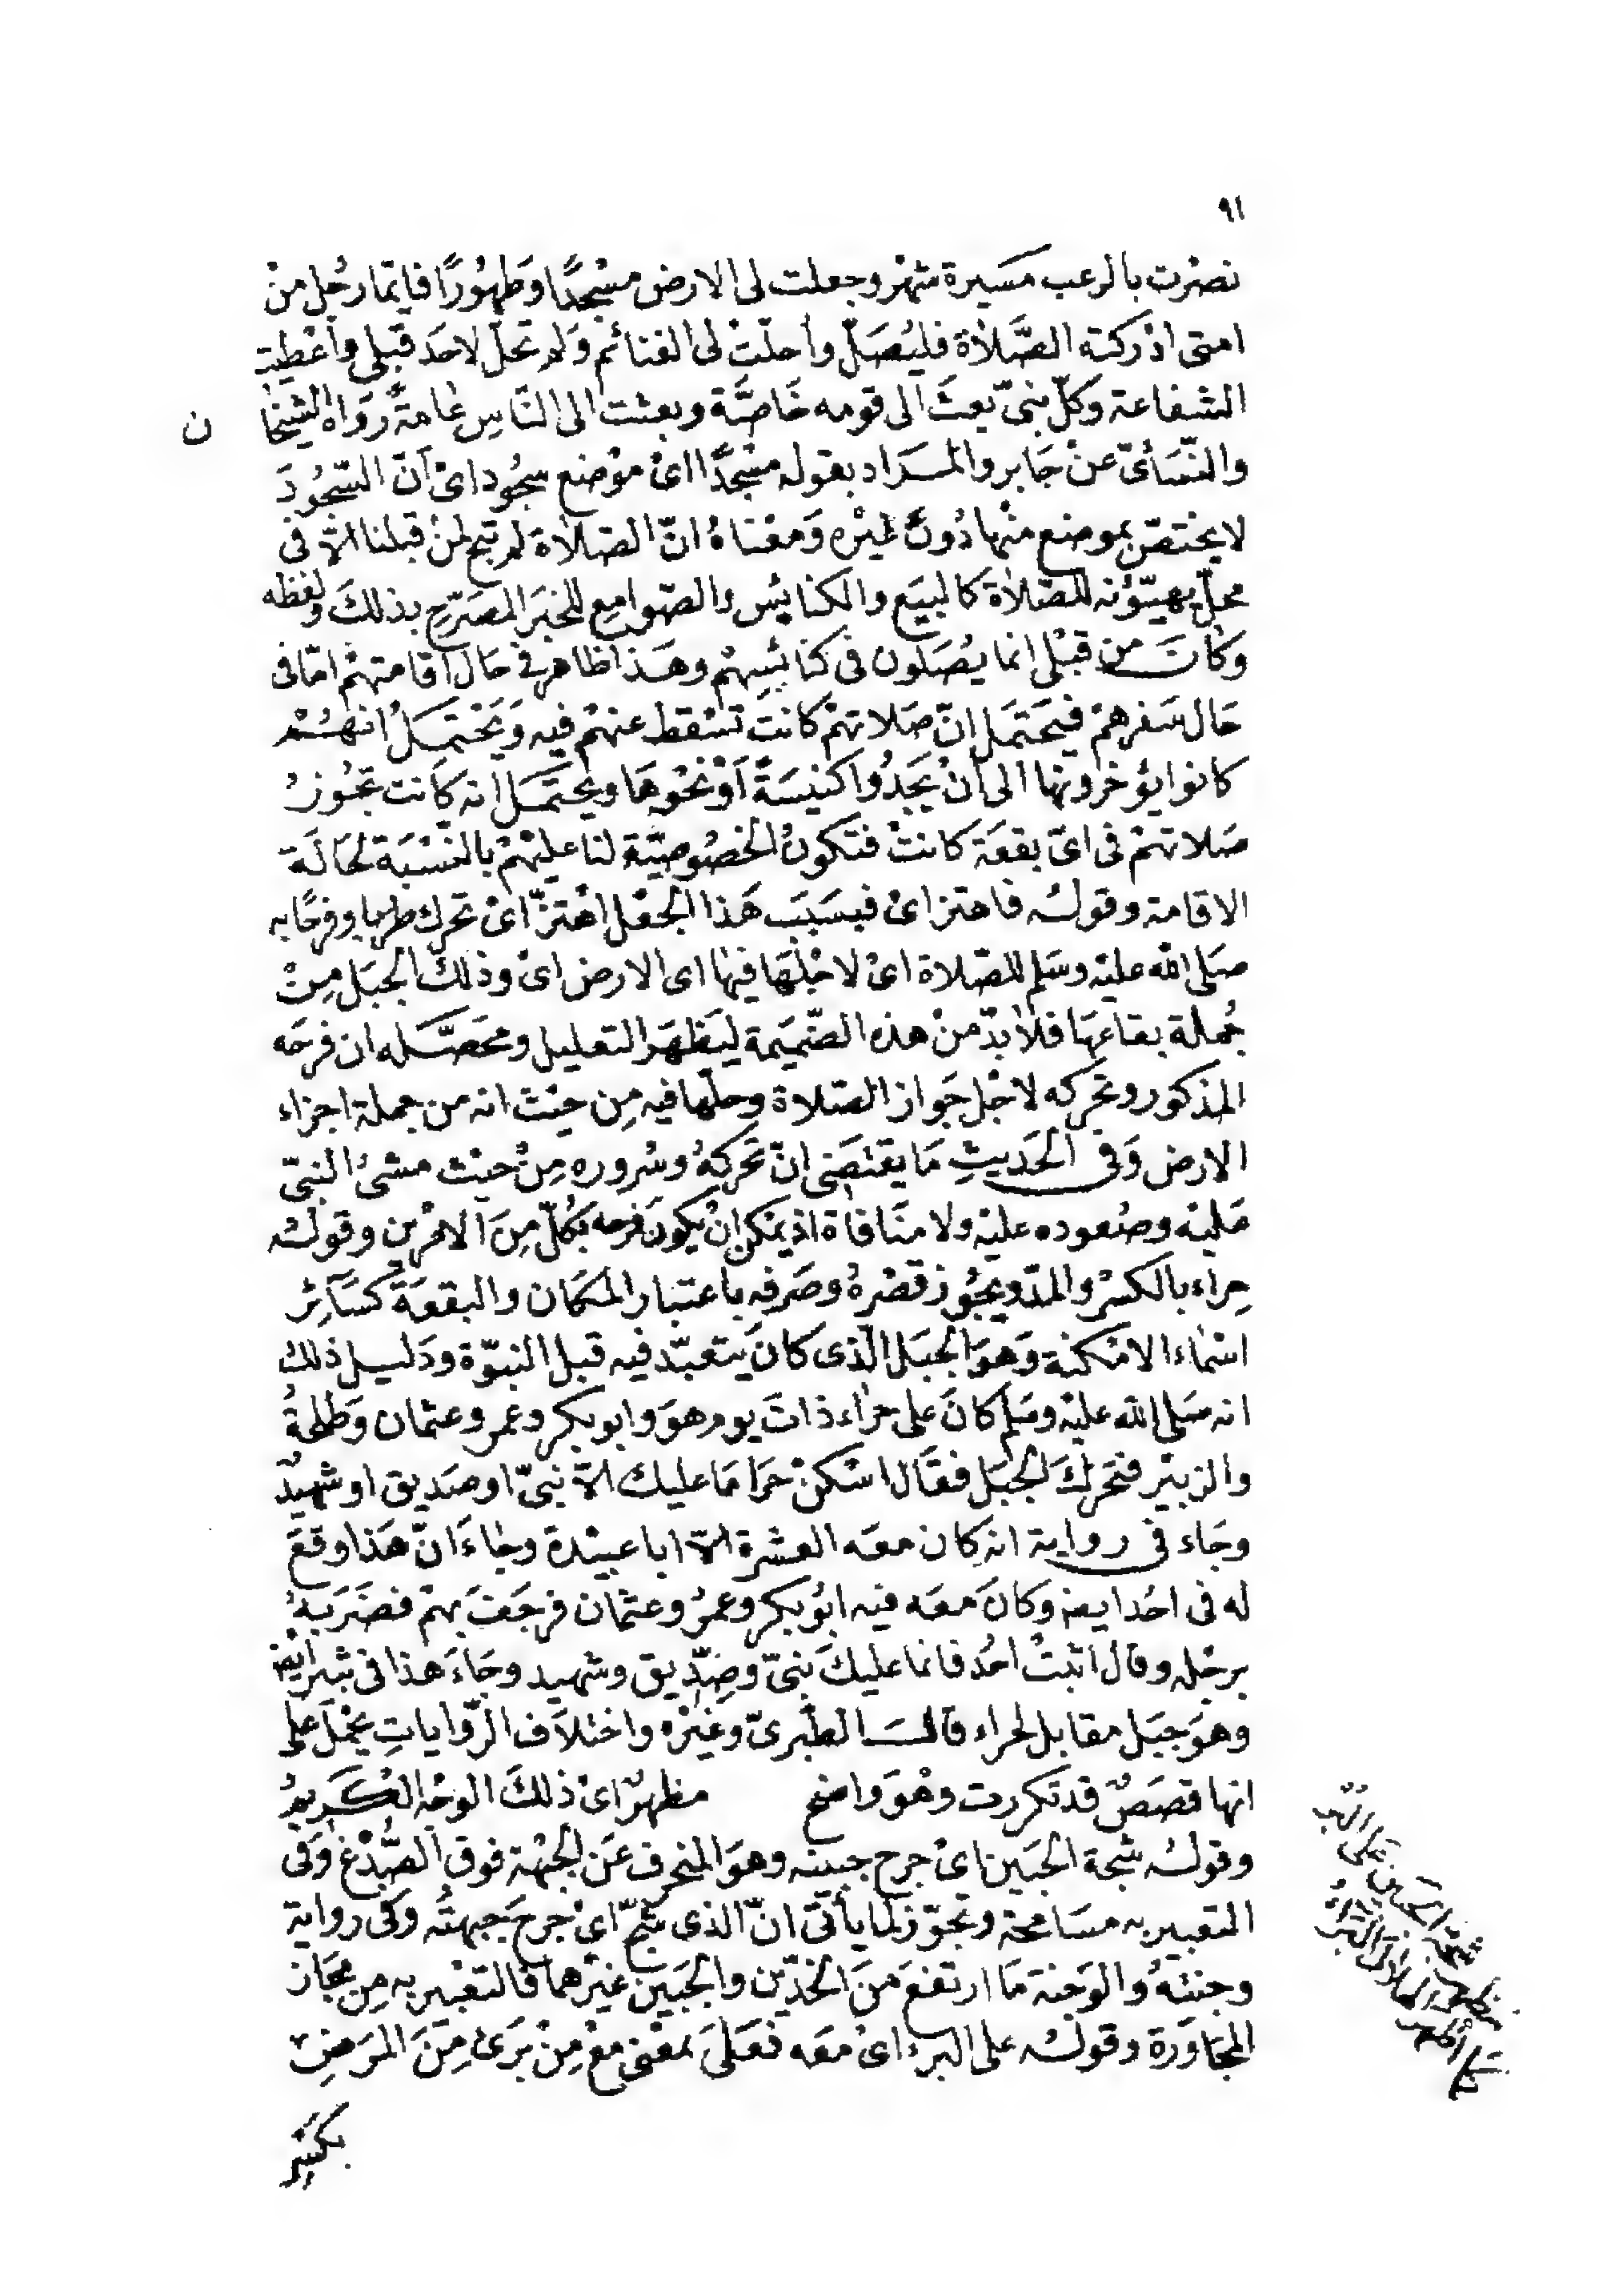 ٩١
نصْرت بالرعب مسيرة شهْر وجعلت لى الارض مسْجدًا وطهُورًا فايّما رجُل منْ
امتى ادْركته الصَّلاة فليُصَلّ وأحلّتْ لى الغنائم وَلم تحلّ لاحَد قَبلى وأعْطيت
الشفاعة وكلّ نبىّ بعثَ الى قومه خَاصَّة وبعثت الى النَّاسِ عامةً روَاه الشيخا ن
والنّسَائىّ عنْ جَابر والمراد بقوله مسْجدًا اىْ موْضع سجُود اىْ أنّ السّجُودَ
لا يختصّ بموضع منْها دُونَ غيْره وَمعْناهُ انّ الصّلاةَ لم تبح لمنْ قبلنا الاّ فى
محلّ يهيّؤنه للصّلاة كالبيَع والكنايس والصّوامِع للخبَر المصَرّح بذلكَ ولفظه
وكانَ من قبْلى انما يُصَلون فى كنائسِهمْ وهَذا ظاهر فى حَال اقامتهمْ امّا فى
حَال سَفرهمْ فيحتَمَل انّ صَلاتهمْ كانتَ تسْقط عنهمْ فيه وَيَحْتمِلُ انهُمْ
كانوا يؤخرونها الى أنْ يَجدُوا كنيسَةً أوْ نحْوهَا ويحتمَل انه كانت تجُوزُ
صَلاتهمْ فى اىّ بقعَة كانتْ فتكونُ الخصُوصيّة لنا عليْهمْ بالنسْبَة لحَالَة
الاقامة وقولُه فاهتز اىْ فبسَبَب هَذا الجعْل اهْتزّ اىْ تحرك طربا وفرحًا به
صَلى الله عليْه وسَلم للصّلاة اىْ لاجْلهَا فيها اى الارض اىْ وذلكَ الجبَل مِنْ
جُملة بقاعهَا فلا بدّ منْ هذه الضّميَمة ليَظهَر التعليل ومحَصّله ان فرحَه
المذكور وتحركه لاجْل جَواز الصّلاة وحلّها فيه مِن حيْث انه من جملة اجزاء
الارض وَفى الحَديثِ مَا يقتضَى انّ تحركهُ وسُروره مِنْ حيْث مشىُ النبىّ
عَليْه وصُعوده عليْه ولا منَافاة اذ يمكن انْ يكونَ فرحه بكُلّ مِنَ الامْرين وقولُه
حِراء بالكسْر والمدّ ويجُوز قصْرهُ وصَرفه باعتبار المكَان والبقعَة كسَآئر
اسْماء الامْكنة وَهوَ الجبَل الّذى كانَ يتعبّد فيه قبل النبوّة ودَليل ذلك
انه صَلى الله عليْه وسَلم كانَ على حرَاء ذاتَ يوم هوَ وابو بكر وعمر وعثمان وَطلحةُ
والزبيْر فتحرّكَ الجبَل فقَال اسْكنْ حَرا مَا عليك الاّ نبىّ او صَديق او شهيدٌ
وجَاء فى رواية انه كان معَه العشرة الاّ ابا عبيْدة وجاءَ انّ هَذا وقعَ
له فى احُد ايضا وكانَ معَه فيه ابُو بكر وعمرُ وعثمان فرجَفَ بهمْ فضَرَبهُ
برجْله وقال اثبتْ احُد فانما عليكَ نبىّ وصِدّيق وشهيد وجَاءَ هذا فى ثبير ايضا
وهوَ جبَل مقابل لحراء قالَ الطّبرىّ وغيْره واختلاَف الرّواياتِ يحْمَل على
انها قصَصٌ قد تكررت وهْوَ واضح مظهرٌ اىْ ذلكَ الوجْه الكَريمُ
وقولُه شجّة الجَبين اىْ جرح جبينه وهوَ المنحرف عَن الجبْهة فوق الصُّدْغ وَفى
التعبير به مسَامحة وتجوّز لمَا يأتى انّ الذى شجّ اىْ جرحَ جَبهتُه وَفى رواية
وجنتهُ والوَجنة مَا ارتفعَ مَنَ الخدّين والجَبين غيْرهما فالتعْبير به مِن مجَاز
المجَاوَرة وقولُه على البرء اىْ معَه فعَلىَ بمعْنى معْ مِنْ بَرَئ مِنَ المرَضِ
بكسْر